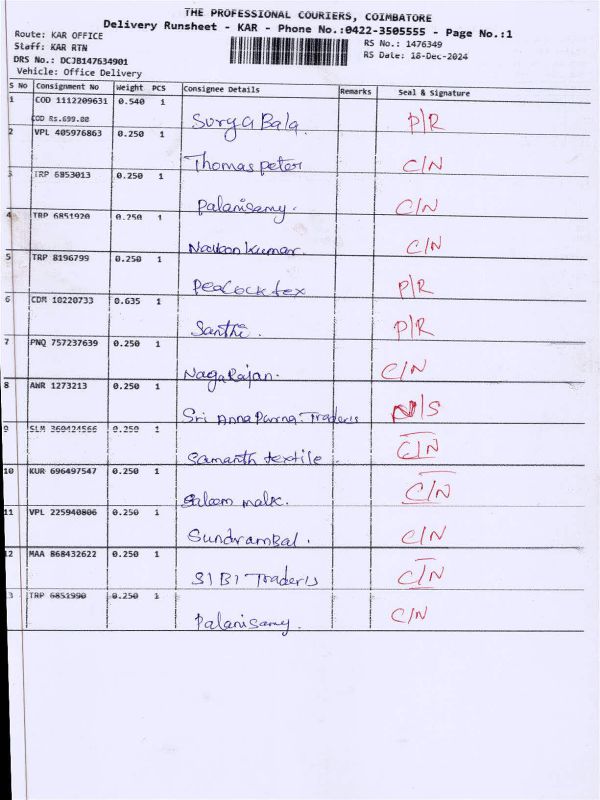 THE PROFESSIONAL COURIERS, COIMBATORE
Delivery Runsheet - KAR - Phone No.:0422-3505555 - Page No.:1
Route: KAR OFFICE
RS No.: 1476349
Staff: KAR RTN
RS Date: 18-Dec-2024
DRS No.: DCJB147634901
Vehicle: Office Delivery
S No Consignment No Weight PCS Consignee Details Remarks Seal & Signature
1 COD 1112209631 0.540 1
COD Rs.699.00 Surya Bala. P/R
2 VPL 405976863 0.250 1
Thomas peter C/N
3 TRP 6853013 0.250 1
Palanisamy. C/N
4 TRP 6851920 0.250 1
Kumar. C/N
5 TRP 8196799 0.250 1
Peacock tex P/R
6 CDM 10220733 0.635 1
Santhi. P/R
7 PNQ 757237639 0.250 1
NagaRajan. C/N
8 AWR 1273213 0.250 1
Sri Anna Purna Traders N/S
9 SLM 360424566 0.250 1
Samanth textile. C/N
10 KUR 696497547 0.250 1
Saleem malk. C/N
11 VPL 225940806 0.250 1
Sundrambal. C/N
12 MAA 868432622 0.250 1
SIBI Traders C/N
3 TRP 6851990 0.250 1
Palanisamy. C/N